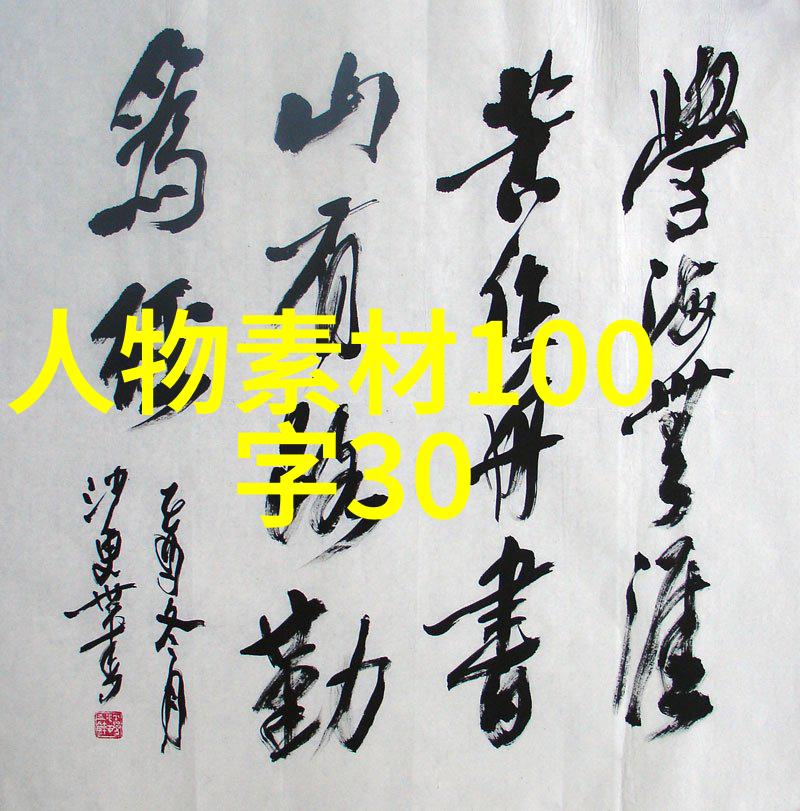 人物素材100
字30
學海無涯
苦作舟書
山有路勤
為徑
乙酉冬月